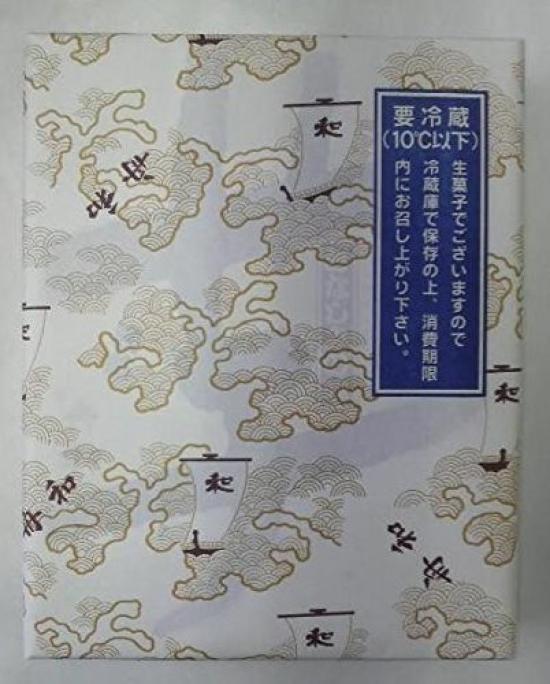 要冷蔵
(10℃以下)
生菓子でございますので
冷蔵庫で保存の上、消費期限
内にお召し上がり下さい。
和
和
和
和
和
和
和